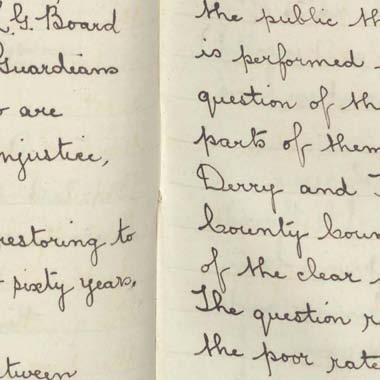 G. Board
Guardians
are
injustice,
restoring to
sixty years,
between
the public th
is performed
question of th
parts of them
Derry and T
County Coun
of the clear
The question r
the poor rate